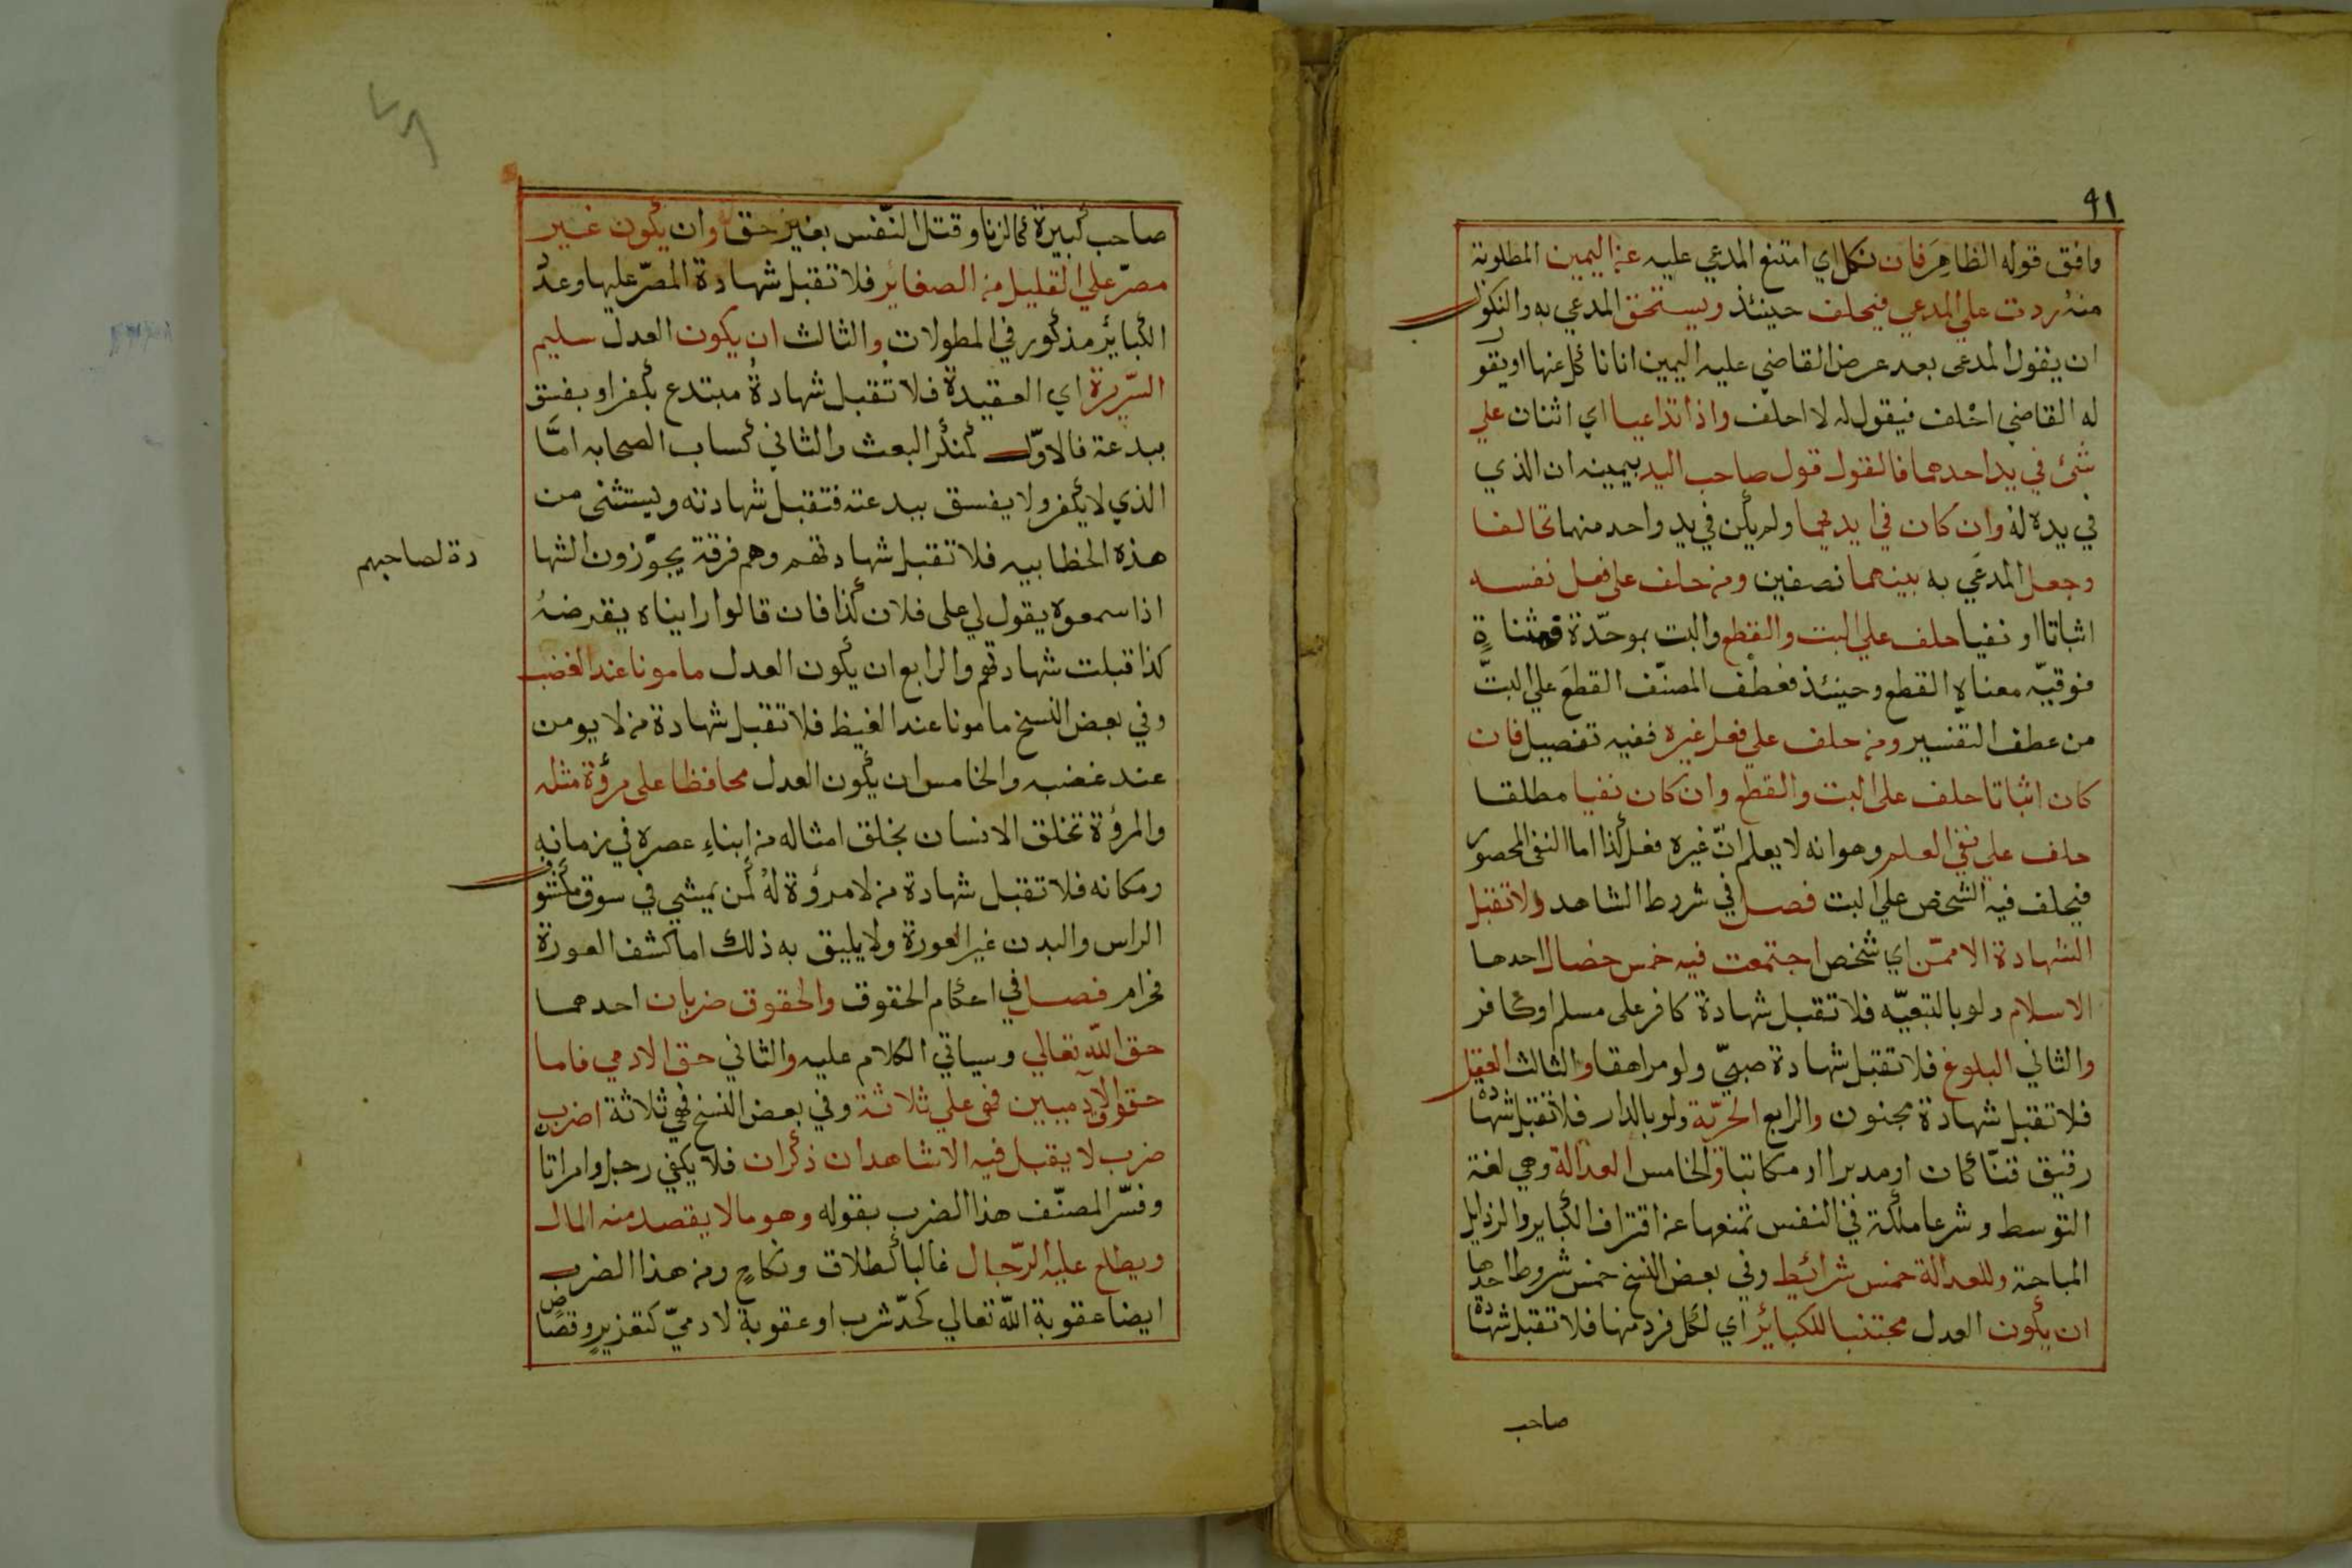 ٩١
وافق قوله الظاهرَ فان نكل اي امتنع المدعي عليه عن اليمين المطلوبة
منه ردت علي المدعي فيحلف حينئذ ويستحق المدعي به والنكول
ان يقول المدعى بعد عرض القاضي عليه اليمين انا ناكل عنها او يقو
له القاضي احلف فيقول له لا احلف واذا تداعيا اي اثنان علي
شئ في يد احدهما فالقول قول صاحب اليد بيمينه ان الذي
في يده له وان كان في ايديهما ولم يكن في يد واحد منهما تحالفا
وجعل المدعَي به بينهما نصفين ومن حلف على فعل نفسه
اثباتا او نفيا حلف علي البت والقطع والبت بموحّدة فمثناةٍ
فوقيّه معناه القطع وحينئذ فعطف المصنّف القطعَ علي البتّ
من عطف التفسير ومن حلف علي فعل غيره ففيه تفصيل فان
كان اثباتا حلف على البت والقطع وان كان نفيا مطلقا
حلف علي نفي العلم وهو انه لا يعلم انّ غيره فعل كذا اما النفي المحصور
فيحلف فيه الشخص علي البت فصل في شروط الشاهد ولا تقبل
الشهادة الا ممّن اي شخص اجتمعت فيه خمس خصال احدها
الاسلام ولو بالتبعيّه فلا تقبل شهادة كافر على مسلم او كافر
والثاني البلوغ فلا تقبل شهادة صبيّ ولو مراهقا والثالث العقل
فلا تقبل شهادة مجنون والرابع الحريّة ولو بالدار فلا تقبل شهادة
رقيق قنّا كان او مدبرا او مكاتبا والخامس العدالة وهي لغة
التوسط وشرعا ملكة في النفس تمنعها عن اقتراف الكباير والرذايل
المباحة وللعدالة خمس شرائيط وفي بعض النسخ خمس شروط احدها
ان يكون العدل مجتنبا للكبائر اي لكل فرد منها فلا تقبل شهادة
صاحب
صاحب كبيرة كالزنا وقتل النّفس بغير حق وان يكون غير
مصرّ علي القليل من الصغائر فلا تقبل شهادة المصرّ عليها وعدّ
الكبائر مذكور في المطولات والثالث ان يكون العدل سليم
السّريرة اي العقيدة فلا تُقبل شهادةُ مبتدع يكفر او يفسق
ببدعة فالاوّل كمنكر البعث والثاني كساب الصحابه امَّا
الذي لا يكفر ولا يفسق ببدعته فتقبل شهادته ويستثنى من
هذه الخطابيه فلا تقبل شهادتهم وهم فرقة يجوّزون الشها
دة لصاحبهم
اذا سمعوه يقول لي على فلان كذا فان قالوا رايناه يقرضهُ
كذا قبلت شهادتهم والرابع ان يكون العدل مامونا عند الغضب
وفي بعض النسخ مامونا عند الغيظ فلا تقبل شهادة من لا يومن
عند غضبه والخامس ان يكون العدل محافظا على مرؤة مثله
والمرؤة تخلق الانسان بخلق امثاله من ابناءِ عصره في زمانه
ومكانه فلا تقبل شهادة من لا مرؤة لهُ كمن يمشي في سوق مكشو
الراس والبدن غير العورة ولا يليق به ذلك اما كشف العورة
فحرام فصل في احكام الحقوق والحقوق ضربان احدهما
حق اللّه تعالي وسياتي الكلام عليه والثاني حق الادمي فاما
حقوق الآدميين فهى علي ثلاثة وفي بعض النسخ فهي ثلاثة اضرب
ضرب لا يقبل فيه الا شاهدان ذكران فلا يكفي رجل وامراتان
وفسّر المصنّف هذا الضرب بقوله وهو ما لا يقصد منه المال
ويطلع عليه الرّجال غالبا كطلاق ونكاحٍ ومن هذا الضرب
ايضا عقوبة اللّه تعالي كحدّ شرب او عقوبة لادميّ كتعزيرٍ وقصاصٍ